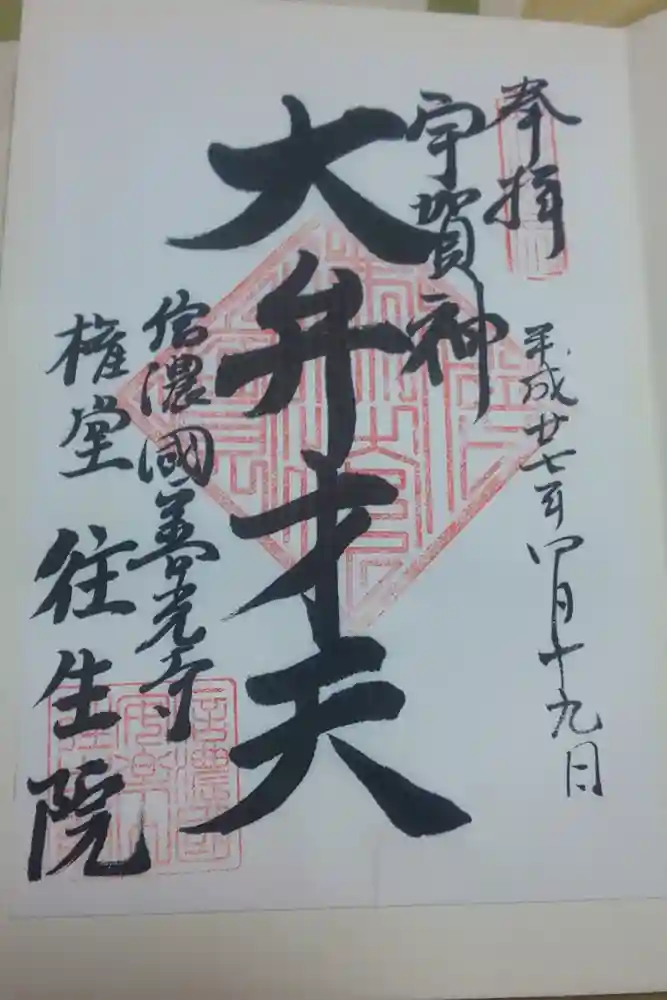 奉拝
平成廿七年四月十九日
宇賀神
大弁才天
信濃國善光寺
権堂 往生院